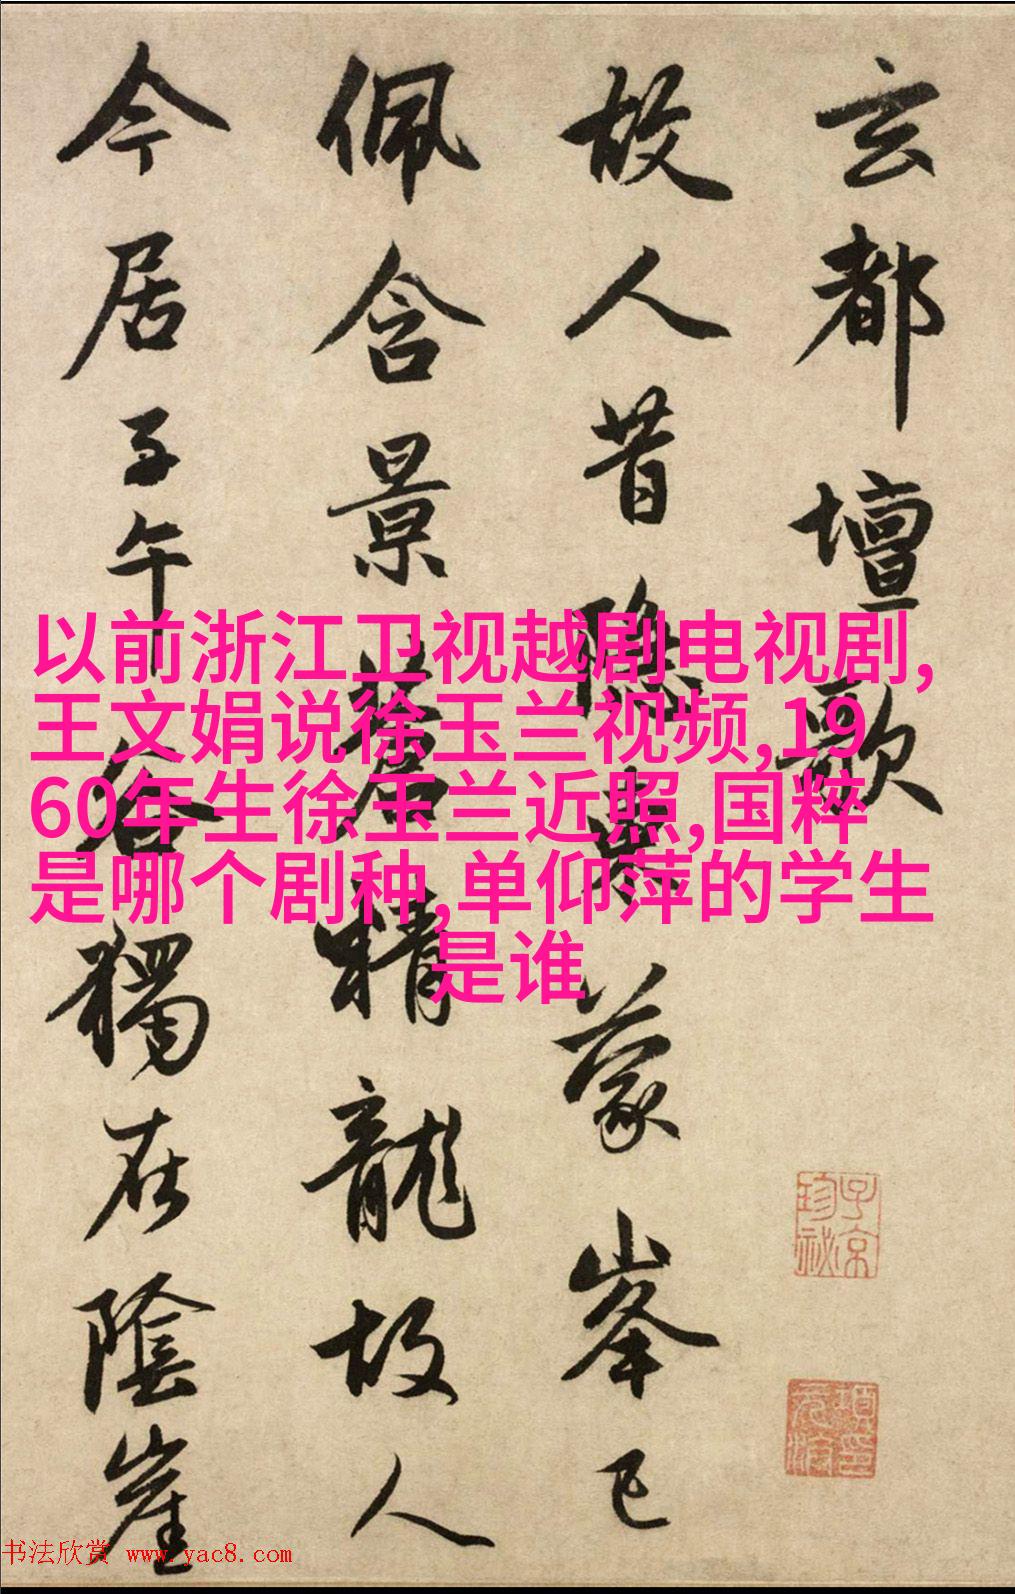 玄都壇歌
故人昔隱東蒙峯已
佩含景蒼精龍故人
今居子午谷獨在陰崖
以前浙江卫视越剧电视剧,
王文娟说徐玉兰视频,19
60年生徐玉兰近照,国粹
是哪个剧种,单仰萍的学生
是谁
子京
珍秘
书法欣赏 www.yac8.com